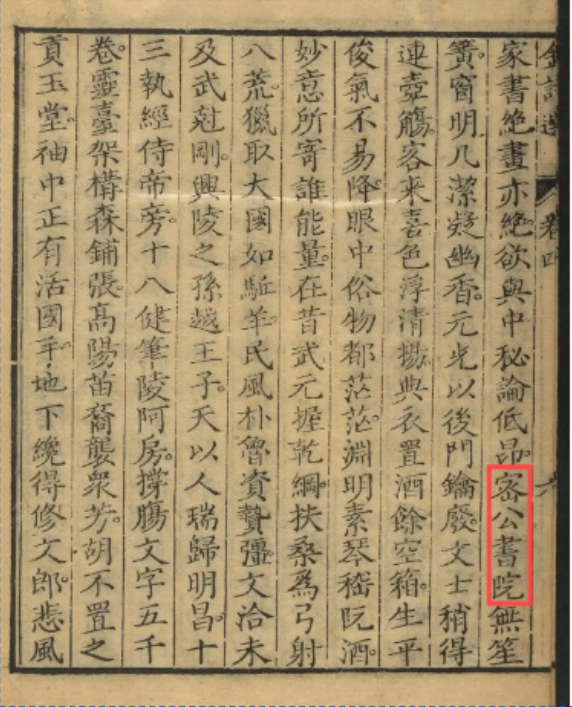 金詩選 卷四 六
家書絕畫亦絕。欲與中秘論低昂。宻公書院無笙
簧。窗明几潔凝幽香。元光以後門鑰廢。文士稍得
連壺觴。客來喜色浮清揚。典衣置酒餘空箱。生平
俊氣不易降。眼中俗物都茫茫。淵明素琴嵇阮酒。
妙意所寄誰能量。在昔武元握乾綱。扶桑爲弓射
八荒。獵取大國如駈羊。民風朴魯資贄彊。文洽未
及武尅剛。興陵之孫越王子。天以人瑞歸明昌。十
三執經侍帝旁。十八健筆陵阿房。撐腸文字五千
卷。靈臺架構森鋪張。高陽苗裔襲衆芳。胡不置之
貢玉堂。袖中正有活國手。地下纔得修文郎。悲風